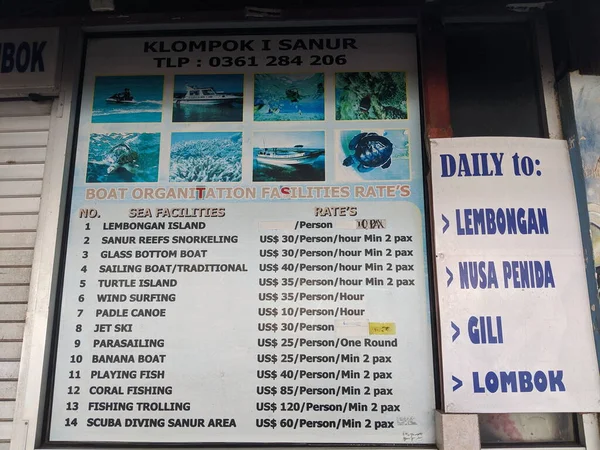 MBOK
KLOMPOK I SANUR
TLP : 0361 284 206
BOAT ORGANITATION FASILITIES RATE'S
NO. SEA FACILITIES RATE'S
1 LEMBONGAN ISLAND /Person
2 SANUR REEFS SNORKELING US$ 30/Person/hour Min 2 pax
3 GLASS BOTTOM BOAT US$ 30/Person/hour Min 2 pax
4 SAILING BOAT/TRADITIONAL US$ 40/Person/hour Min 2 pax
5 TURTLE ISLAND US$ 35/Person/hour Min 2 pax
6 WIND SURFING US$ 35/Person/Hour
7 PADLE CANOE US$ 10/Person/Hour
8 JET SKI US$ 30/Person
9 PARASAILING US$ 25/Person/One Round
10 BANANA BOAT US$ 25/Person/Min 2 pax
11 PLAYING FISH US$ 40/Person/Min 2 pax
12 CORAL FISHING US$ 85/Person/Min 2 pax
13 FISHING TROLLING US$ 120/Person/Min 2 pax
14 SCUBA DIVING SANUR AREA US$ 60/Person/Min 2 pax
DAILY to:
> LEMBONGAN
> NUSA PENIDA
> GILI
> LOMBOK